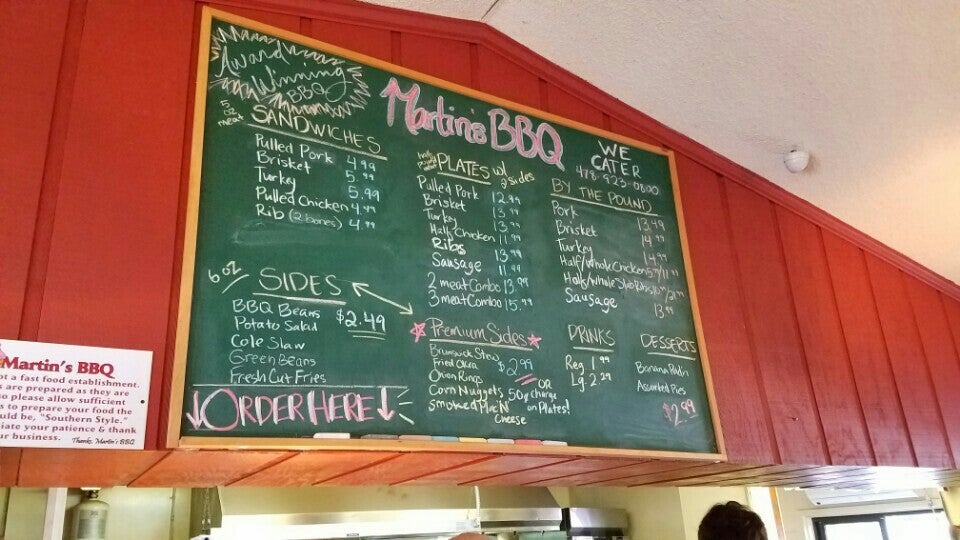 Award
Winning
BBQ
Martin's BBQ
WE
CATER
478-923-0800
5
oz
meat
SANDWICHES
Pulled Pork 4.99
Brisket 5.99
Turkey 5.99
Pulled Chicken 4.99
Rib (2 bones) 4.99
6 oz SIDES
BBQ Beans
Potato Salad
Cole Slaw
Green Beans
Fresh Cut Fries
$2.49
ORDER HERE
PLATES w/
2 sides
Pulled Pork 12.99
Brisket 13.99
Turkey 13.99
Half Chicken 11.99
Ribs 13.99
Sausage 11.99
2 meat Combo 13.99
3 meat Combo 15.99
Premium Sides
Brunswick Stew
Fried Okra
Onion Rings
Corn Nuggets
Smoked Mac N
Cheese
$2.99
OR
50¢ charge
on Plates!
BY THE POUND
Pork 13.99
Brisket 14.99
Turkey 14.99
Half/Whole Chicken
Half/Whole Slab
Sausage 13.99
DRINKS
Reg 1.99
Lg. 2.29
DESSERTS
Banana Pudin
Assorted Pies
$2.99
Martin's BBQ
ot a fast food establishment.
s are prepared as they are
o please allow sufficient
s to prepare your food the
uld be, "Southern Style."
iate your patience & thank
ur business.
Thanks, Martin's BBQ